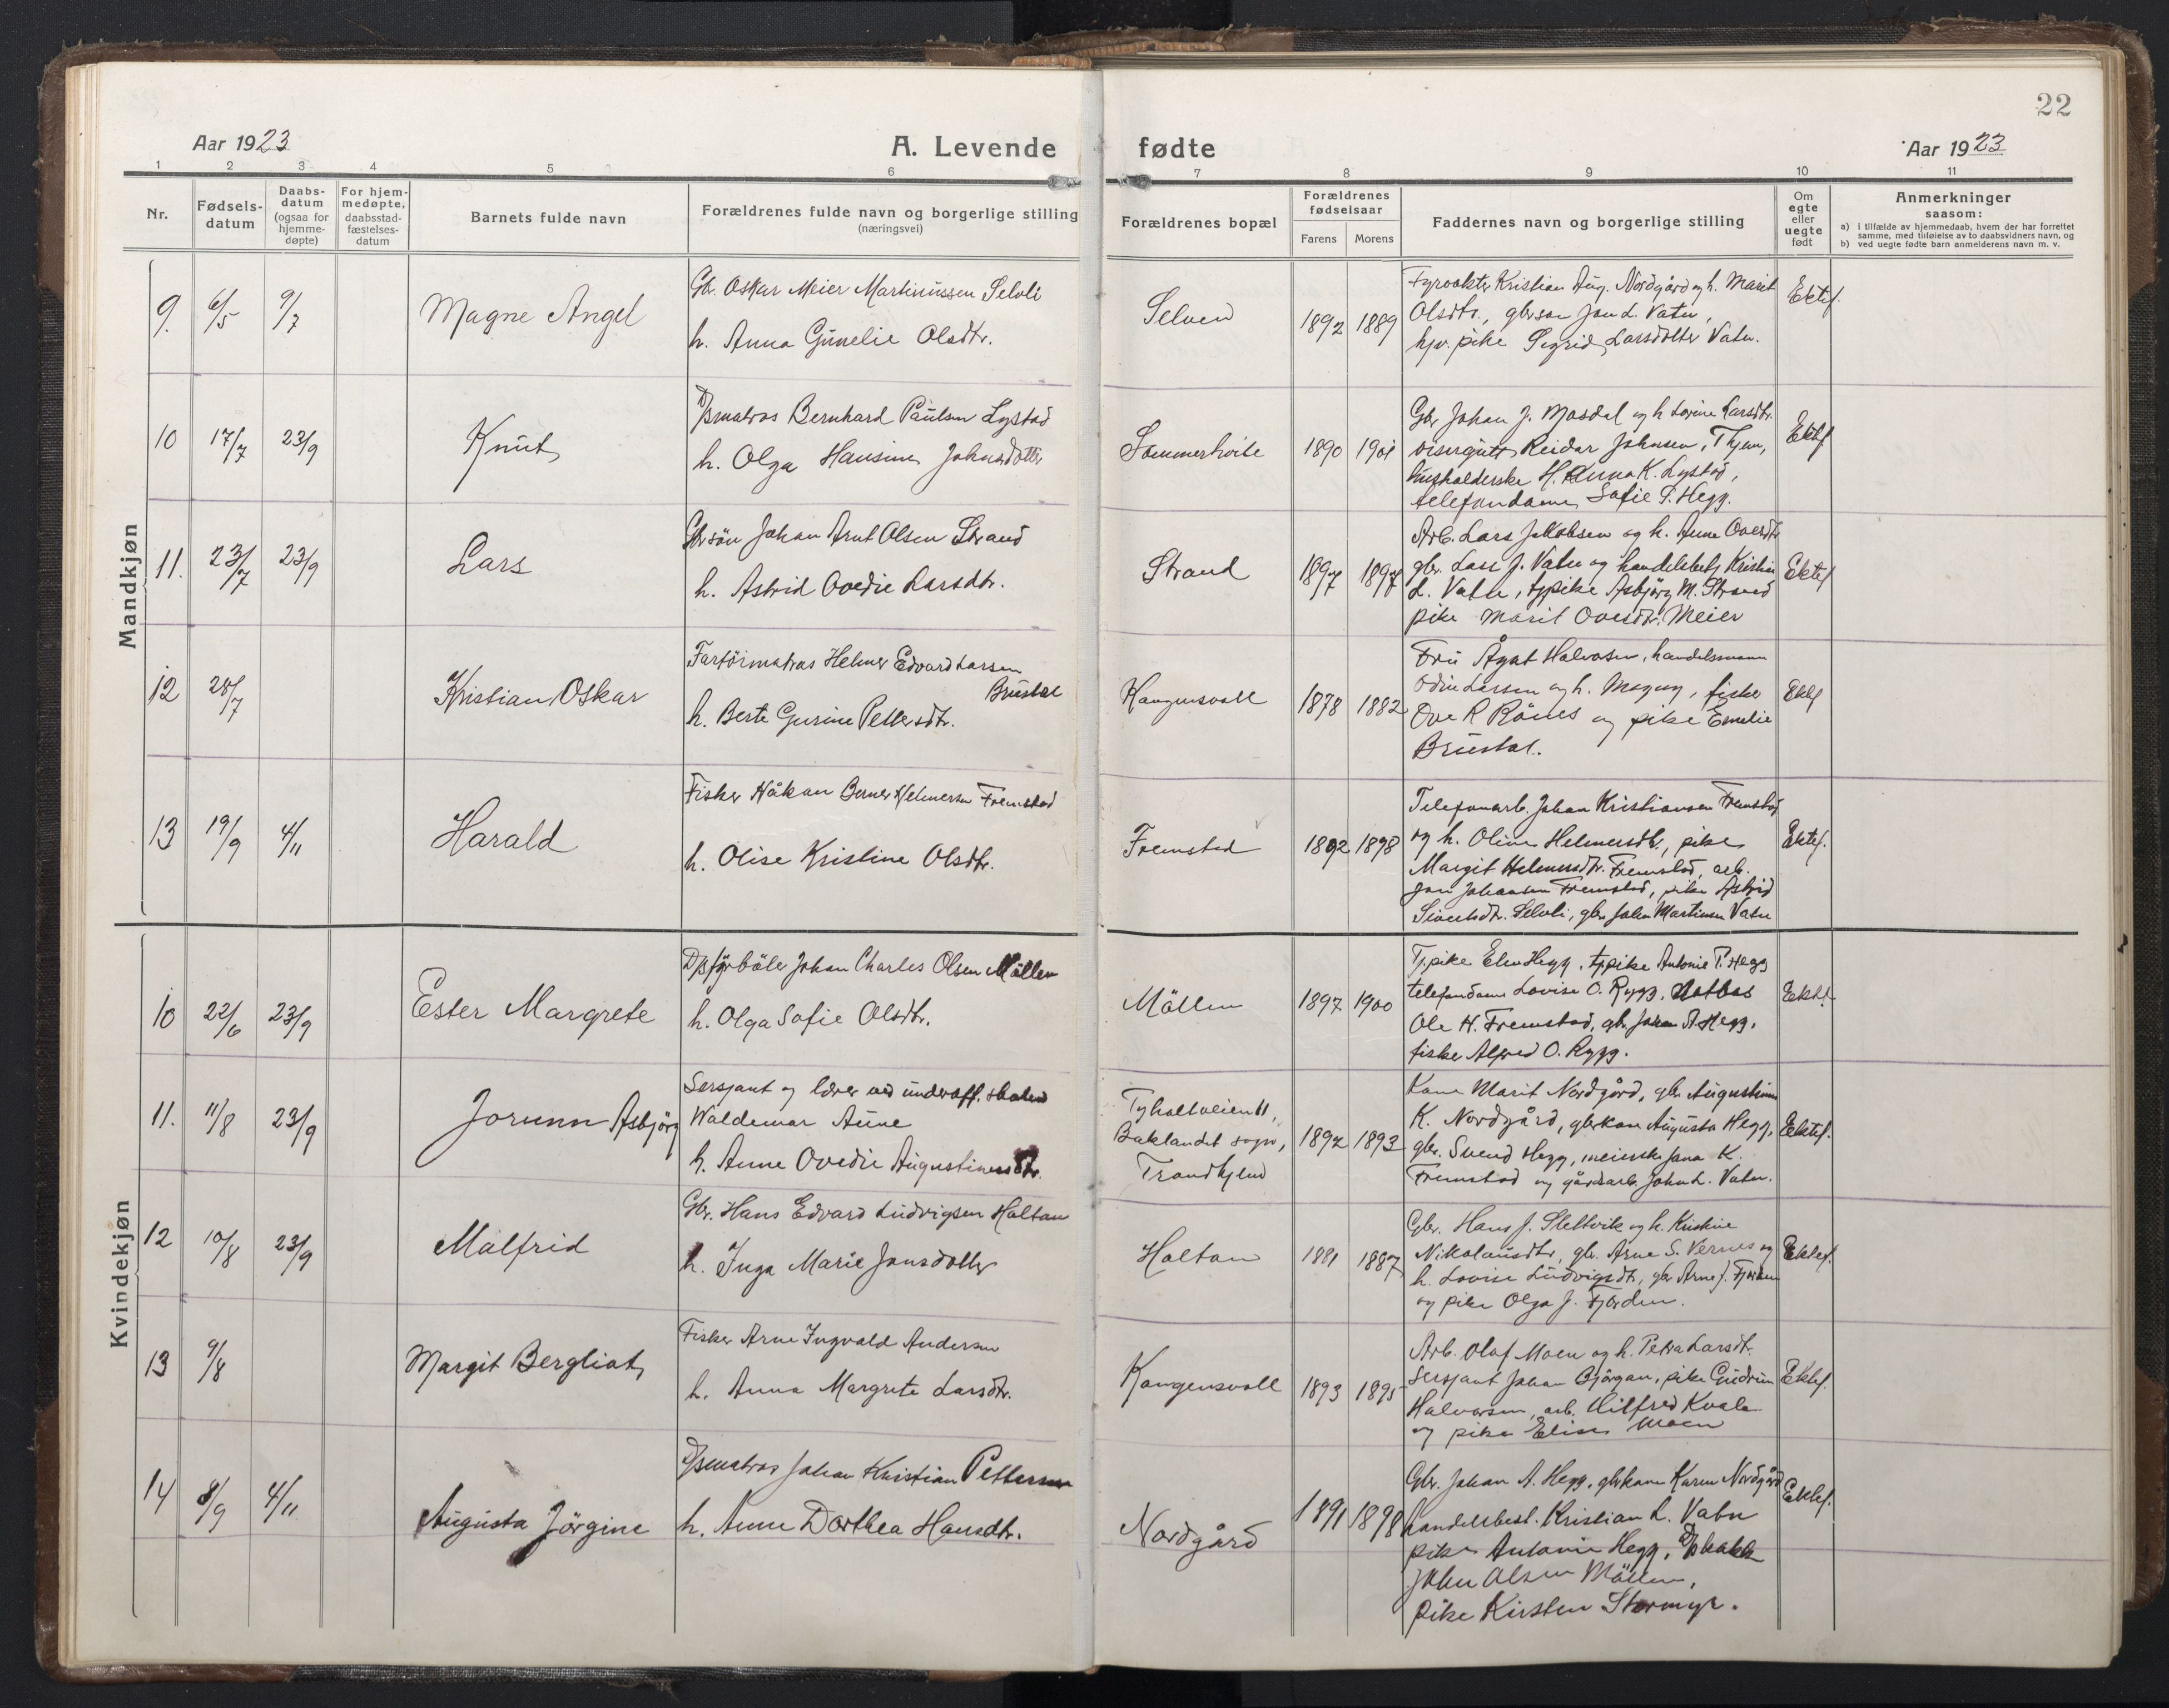 22
Aar 1923
A. Levende
fødte
Aar 1923
1 2 3 4 5 6 7 8 9 10 11
Nr.
Fødsels-
datum
Daabs-
datum
(ogsaa for
hjemme-
døpte)
For hjem-
medøpte,
daabsstad-
fæstelses-
datum
Barnets fulde navn
Forældrenes fulde navn og borgerlige stilling
(næringsvei)
Forældrenes bopæl
Forældrenes
fødselsaar
Farens Morens
Faddernes navn og borgerlige stilling
Om
egte
eller
uegte
født
Anmerkninger
saasom:
a) i tilfælde av hjemmedaab, hvem der har forrettet
samme, med tilføielse av to daabsvidners navn, og
b) ved uegte fødte barn anmelderens navn m. v.
Mandkjøn
9. 6/5 9/7
Magne Angel
Gbr. Oskar Meier Martinussen Selvli
h. Anna Gunelie Olsdtr.
Selven
1892 1889
Fyrvokter Kristian Aug. Nordgård og h. Marit
Olsdtr., gbrsøn Jon L. Vatn,
hjv. pike Sigrid Larsdotter Vatn.
Ektef.
10 17/7 23/9
Knut
D/smatros Bernhard Paulsen Lystad
h. Olga Hansine Johnsdotter
Sommerhvile
1890 1901
Gbr Johan J. Mosdal og h Lovine Larsdtr.
visergut Reidar Johnsen, Thjem,
husholderske H. Anna K. Lystad,
telefondame Sofie P. Hegg.
Ektef
11. 23/7 23/9
Lars
Gbrsön Johan Arnt Olsen Strand
h. Astrid Ovedie Larsdtr.
Strand
1897 1897
Arb. Lars Jakobsen og h. Anne Ovesdtr
gbr. Lars J. Vatn og handelsbetj Kristian
L. Vatn, tjpike Asbjørg M. Strand
pike Marit Ovesdtr. Meier
Ektef
12 28/7
Kristian Oskar
Fartöimatros Helmer Edvard Larsen
Brustal
h. Berte Gurine Pettersdtr.
Kongensvoll
1878 1882
Fru Ågot Halvorsen, handelsmann
Odin Larsen og h. Magny, fisker
Ove R Rönes og pike Emelie
Brustal.
Ektf
13 19/9 4/11
Harald
Fisker Håkon Berner Helmersen Fremstad
h. Olise Kristine Olsdtr.
Fremstad
1892 1898
Telefonarb. Johan Kristiansen Fremstad
og h. Oline Helmersdtr., pike
Margit Helmersdtr. Fremstad, arb.
Jon Johansen Fremstad, pike Astrid
Sivertsdtr. Selvli, gbr John Martinsen Vatn
Ektef.
Kvindekjøn
10 22/6 23/9
Ester Margrete
D/s fyrböter Johan Charles Olsen Möllen
h. Olga Sofie Olsdtr.
Möllen
1897 1900
Tj.pike Elen Hegg, tjpike Antonie P. Hegg
telefondame Lovise O. Rygg, Matros
Ole H. Fremstad, gbr. Johan A. Hegg,
fisker Alfred O. Rygg.
Ektef.
11. 11/8 23/9
Jorunn Asbjörg
Sersjant og lærer ved underoff. skolen
Waldemar Aune
h. Anne Ovedie Augustinusdtr.
Tyholtveien 11,
Baklandet sogn,
Trondhjem
1892 1893
Kone Marit Nordgård, gbr Augustinus
K. Nordgård, gbrkone Augusta Hegg,
gbr. Svend Hegg, meierske Jana K.
Fremstad og gårdsarb. John L. Vatn.
Ektef.
12 10/8 23/9
Målfrid
Gbr. Hans Edvard Ludvigsen Holtan
h. Inga Marie Jonsdotter
Holtan
1881 1887
Gbr. Hans J. Slettvik og h. Kristine
Nikolausdtr, gbr. Arne S. Vernes og
h. Lovise Ludvigsdtr, gbr Arne J. Fjorden
og pike Olga J. Fjorden.
Ektef.
13 9/8
Margit Bergliot
Fisker Arne Ingvald Andersen
h. Anna Margrete Larsdtr.
Kongensvoll
1893 1895
Arb. Olaf Moen og h. Petra Larsdtr.
Sersjant Johan Bjørgan, pike Gudrun
Halvorsen, arb. Hilfred Kvale
og pike Elise Moen
Ektef.
14 8/9 4/11
Augusta Jörgine
D/smatros Johan Kristian Pettersen
h. Anne Dorthea Hansdtr.
Nordgård
1891 1898
Gbr. Johan A. Hegg, gbrkone Karen Nordgård
handelsbest. Kristian L. Vatn
pike Antonie Hegg,
John Olsen Möllen,
pike Kirsten Stormyr.
Ektef.